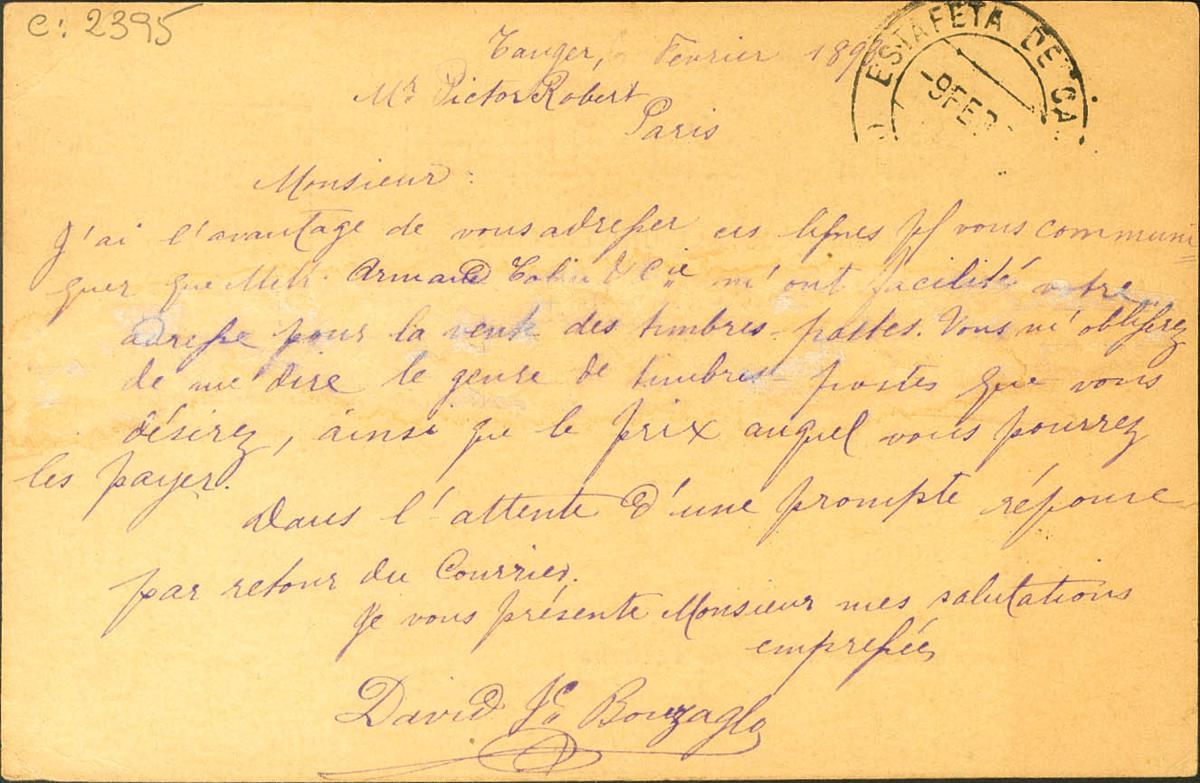 C: 2395
Tanger, Fevrier 189
ESTAFETA DE CA
-9 FE
Mr Victor Robert
Paris
Monsieur:
J'ai l'avantage de vous adresser ces lignes pr vous communi
quer que MM. Armand Colin & Cie m'ont facilité votre
adresse pour la vente des timbres-postes. Vous m'obligerez
de me dire le genre de timbres-postes que vous
désirez, ainsi que le prix auquel vous pourrez
les payer.
Dans l'attente d'une prompte réponse
par retour du Courrier.
Je vous présente Monsieur mes salutations
empressées
David Bouzaglo